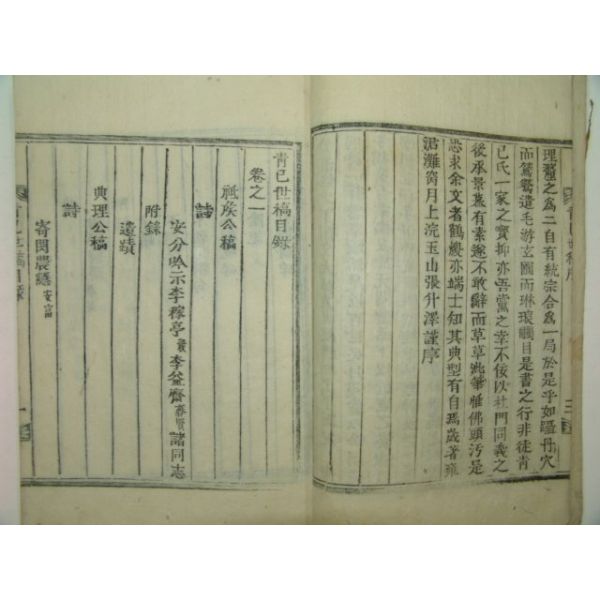 理釐之爲二自有統宗合爲一局於是乎如躡丹穴
而鸞鷟遺毛游玄圃而琳琅矚目是書之行非徒靑
巳氏一家之實抑亦吾黨之幸不佞以杜門同義之
後承景慕有素遂不敢辭而草草泚筆雖佛頭汚是
恐求余文者鶴燮亦端士知其典型有自焉歲著雍
涒灘窩月上浣玉山張升澤謹序
靑巳世稿目錄
卷之一
祗侯公稿
詩
安分吟示李稼亭糓李益齋齊賢諸同志
附錄
遺蹟
典理公稿
詩
寄閔農隱安富
靑巳世稿序
二
靑巳世稿目錄
一